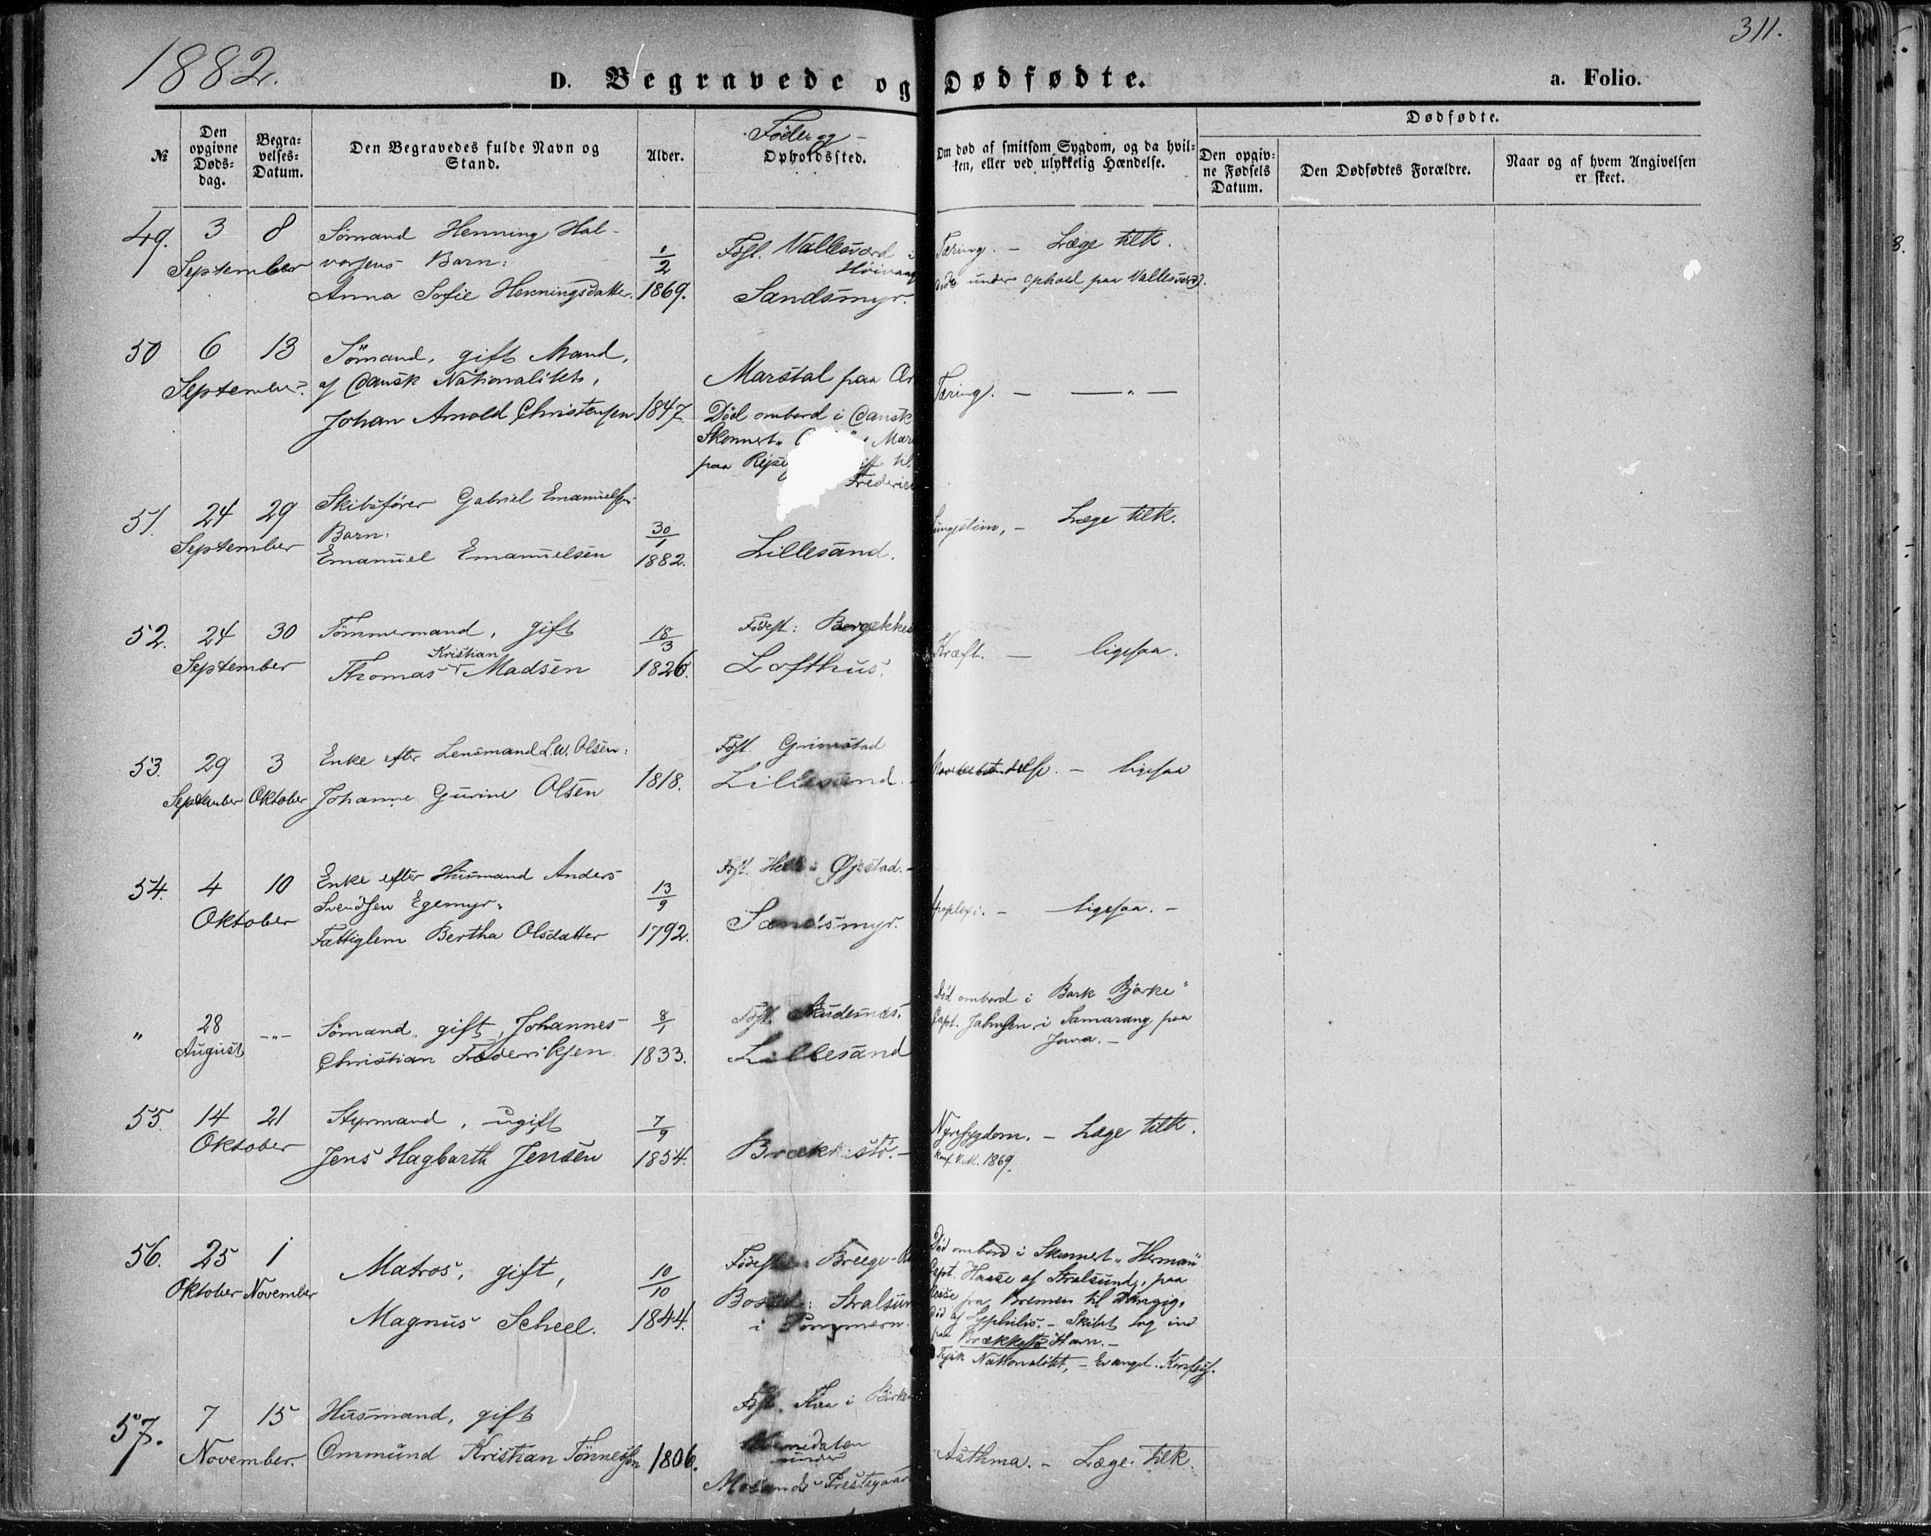 1882.
311.
D. Begravede og Dødfødte.
a. Folio.
№
Den opgivne Døds-dag.
Begra-velses-Datum.
Den Begravedes fulde Navn og Stand.
Alder.
Føde og
Opholdssted.
Om død af smitsom Sygdom, og da hvil-ken, eller ved ulykkelig Hændelse.
Dødfødte.
Den opgiv-ne Fødsels Datum.
Den Dødfødtes Forældre.
Naar og af hvem Angivelsen er skeet.
49. 3 8 Sømand Henning Hal-
September vorsens Barn: 1/2 Fdst. Vallesværd i Tæring. — Læge tilk.
Anna Sofie Henningsdatter. 1869. Sandsmyr. under Ophold paa Vallesværd.
50 6 13 Sømand, gift Mand,
September. af Dansk Nationalitet, Marstal paa Tæring. — — " —
Johan Arnold Christensen 1847. Død ombord i Dansk
Skonnert
paa Rejse til
51. 24 29 Skibsfører Gabriel Emanuelsens Læge tilk.
September Barn: 30/1
Emanuel Emanuelsen 1882. Lillesand.
52. 24 30 Tømmermand, gift 18/3 Fødest: Kræft. — ligesaa.
September Thomas Kristian Madsen 1826. Lofthus.
53. 29 3 Enke efter Lensmand L.W. Olsen: Fdst. Grimstad
September Oktober Johanne Gurine Olsen 1818. Lillesand. — ligesaa
54. 4 10 Enke efter Husmand Anders 13/9 Fdst. Helle i Øjestad. —
Oktober Svendsen Egemyr. Apoplexi. — ligesaa. —
Fattiglem Bertha Olsdatter 1792. Sandsmyr.
" 28 — " — Sømand, gift, Johannes 8/1 Fdst. Skudesnæs. Død ombord i Bark "Bjørke"
August Christian Frederiksen. 1833. Lillesand Capt. i Samarang paa
Java. —
55. 14 21 Styrmand, ugift 7/9 Nyresygdom. — Læge tilk.
Oktober Jens Hagbarth Jensen 1854. Brækkestø. — 1869.
56. 25 1 Matros, gift, 10/10 Fødest: Breege Død ombord i Skonnert "Herman"
Oktober November Magnus Scheel. 1844. Bosted: Stralsund Capt. Haase af Stralsund, paa
i Pommern. Reise fra Bremen til Danzig,
død af Syphilis. — Skibet lag ind
paa Brækkestø Havn. —
Tysk Nationalitet, — Evangl.
57. 7 15 Husmand, gift Fdst. i Birke
November. Ommund Kristian Tønnesen 1806. Asthma. — Læge tilk.
under
Prestegaard